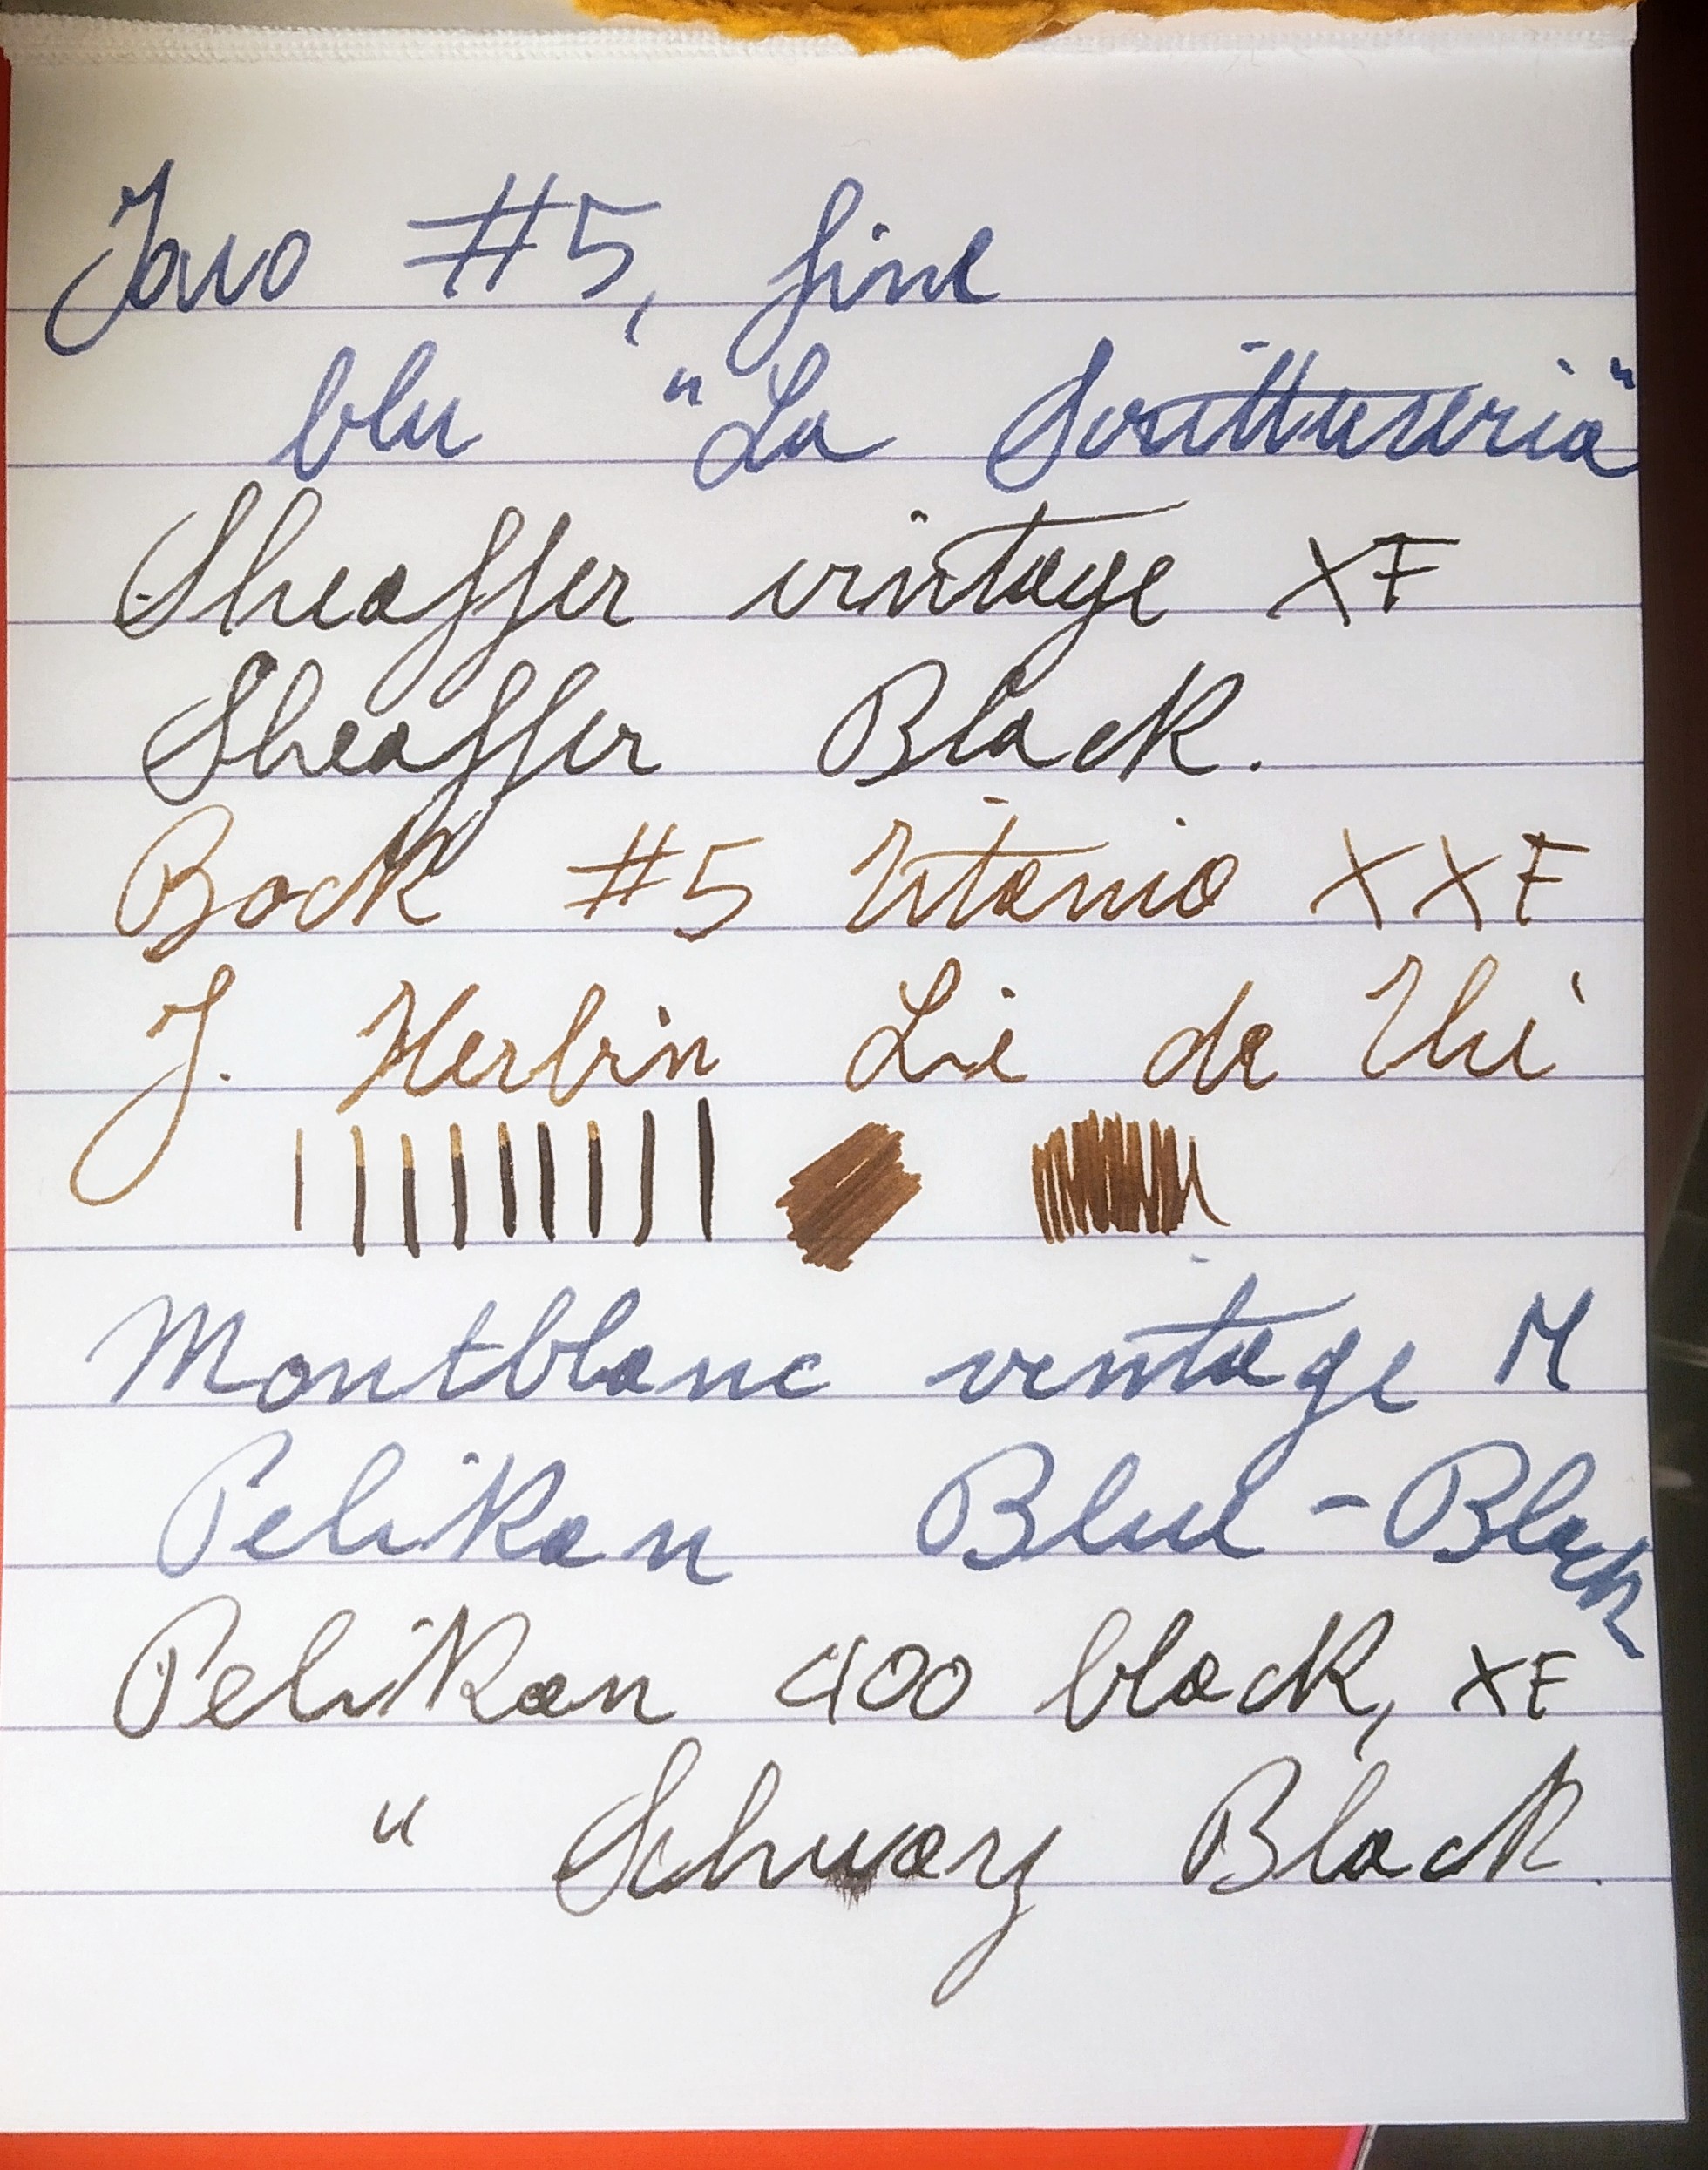 Jowo #5, fine
blu "La Scrittureria"
Sheaffer vintage XF
Sheaffer Black.
Bock #5 Titanio XXF
J. Herbin Lie de Thé
Montblanc vintage M
Pelikan Blue-Black
Pelikan 400 black, XF
" Schwarz Black.